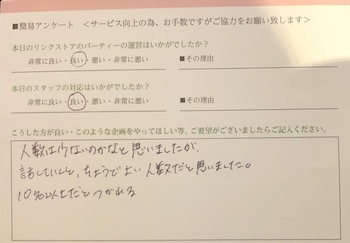 ■簡易アンケート ＜サービス向上の為、お手数ですがご協力をお願い致します＞
本日のリンクストアのパーティーの運営はいかがでしたか？
非常に良い・良い・悪い・非常に悪い ■その理由
本日のスタッフの対応はいかがでしたか？
非常に良い・良い・悪い・非常に悪い ■その理由
こうした方が良い・このような企画をやってほしい等、ご要望がございましたらご記入ください。
人数は少ないのかなと思いましたが、
話していくと、ちょうどよい人数だと思いました。
10名以上だとつかれる